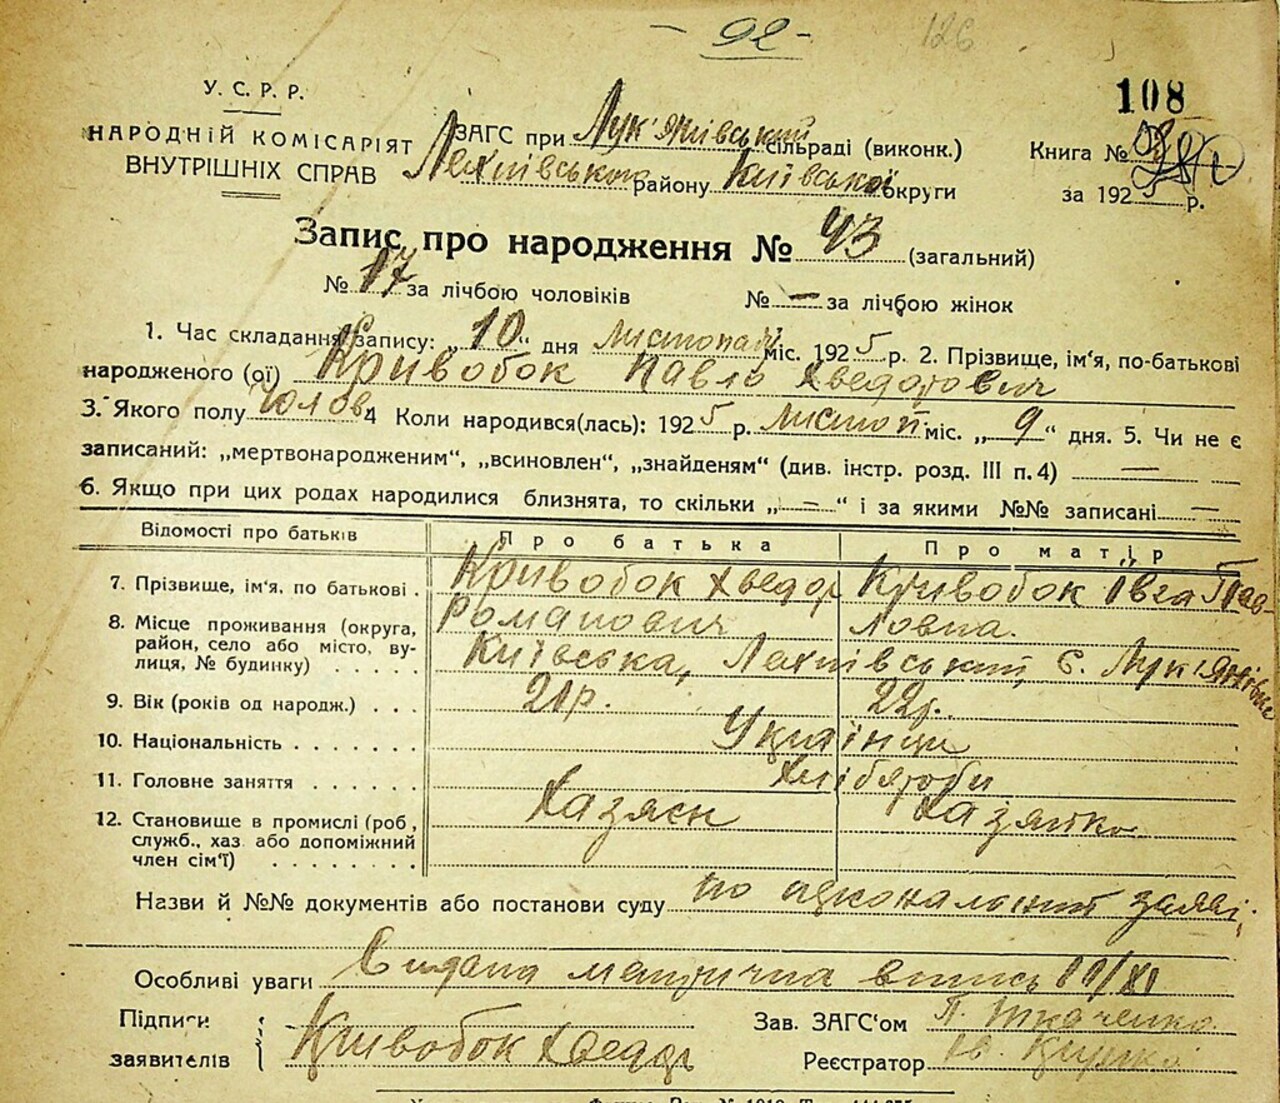 - 92 -
126
108
У. С. Р. Р.
НАРОДНІЙ КОМІСАРІЯТ
ВНУТРІШНІХ СПРАВ
ЗАГС при Лук'янівський сільраді (виконк.)
району Київської округи
Книга №
за 1925 р.
Запис про народження № 43 (загальний)
№ 17 за лічбою чоловіків № — за лічбою жінок
1. Час складання запису: „10“ дня листопад міс. 1925 р. 2. Прізвище, ім'я, по-батькові
народженого (ої) Кривобок Павло Хведорович
3. Якого полу чолов. 4 Коли народився(лась): 1925 р. листоп міс. „9“ дня. 5. Чи не є
записаний: „мертвонародженим“, „всиновлен“, „знайденям“ (див. інстр. розд. III п. 4) —
6. Якщо при цих родах народилися близнята, то скільки „—“ і за якими №№ записані —
Відомості про батьків Про батька Про матір
7. Прізвище, ім'я, по батькові . Кривобок Хведор Романович Кривобок Івга Павловна.
8. Місце проживання (округа,
район, село або місто, ву-
лиця, № будинку) . . . . Київська, с. Лук'янівка
9. Вік (років од народж.) . . . 21р. 22р.
10. Національність . . . . . . . Українци
11. Головне заняття . . . . . . Хліборби
12. Становище в промислі (роб,
служб., хаз або допоміжний
член сім'ї) . . . . . . . . Хазяєн Хазяйка
Назви й №№ документів або постанови суду по заяві
Особливі уваги Видана метрична впись 11/XI
Підписи
заявителів Кривобок Хведор
Зав. ЗАГС'ом П. Ткаченко
Реєстратор Ів.